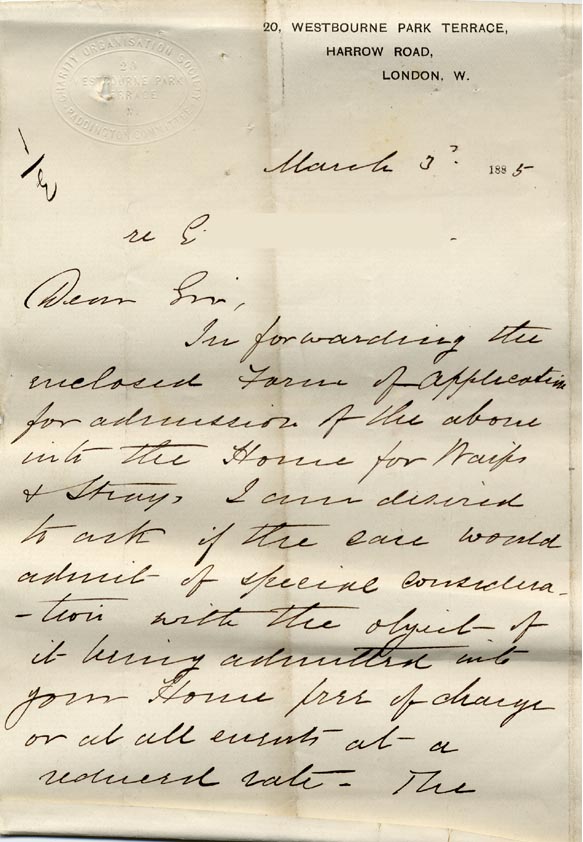 20, WESTBOURNE PARK TERRACE,
HARROW ROAD,
LONDON, W.
CHARITY ORGANISATION SOCIETY
20
WESTBOURNE PARK
TERRACE
W.
PADDINGTON COMMITTEE
March 3 1885
re E
Dear Sir,
In forwarding the
enclosed Form of Application
for admission of the above
into the Home for Waifs
& Strays I am desired
to ask if the case would
admit of special considera-
-tion with the object of
it being admitted into
your Home free of charge
or at all events at a
reduced rate - The